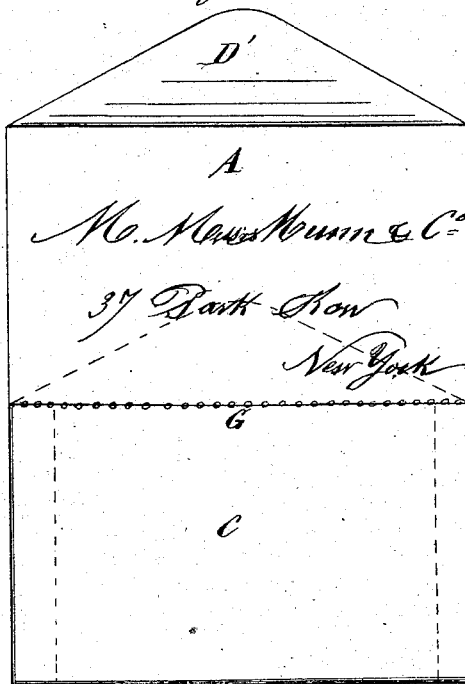 D'
A
M. Mess Munn & Co
37 Park Row
New York
G
C